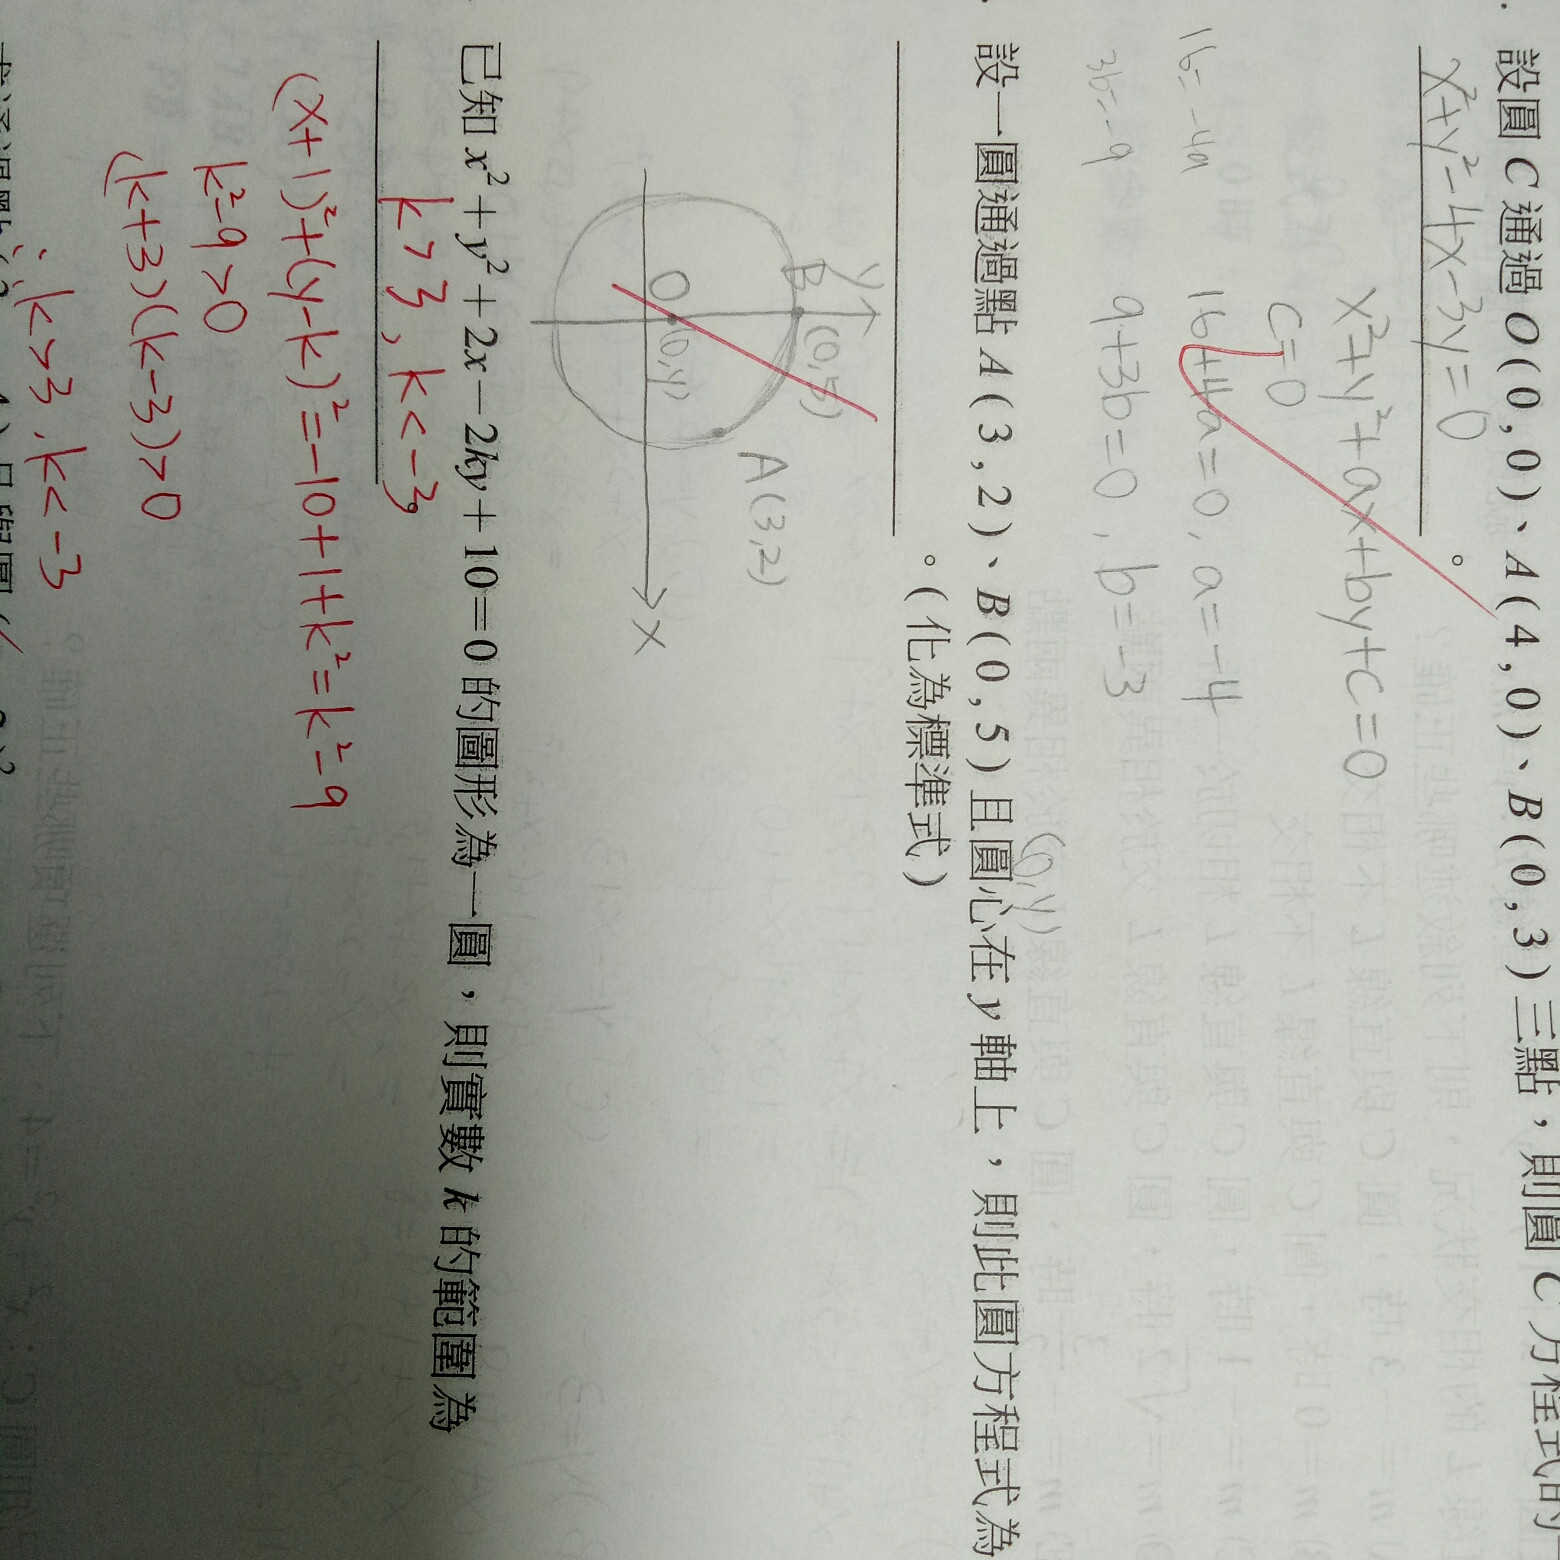 設圓 C 通過 O(0,0)、A(4,0)、B(0,3)三點，則圓 C 方程式的
x²+y²-4x-3y=0 。
x²+y²+ax+by+c=0
c=0
16=-4a 16+4a=0, a=-4
3b=-9 9+3b=0, b=-3
(0,y)
設一圓通過點 A(3,2)、B(0,5)且圓心在 y 軸上，則此圓方程式為
。(化為標準式)
y
B (0,5)
A(3,2)
O (0,y)
x
已知 x²+y²+2x-2ky+10=0 的圖形為一圓，則實數 k 的範圍為
k>3, k<-3 。
(x+1)²+(y-k)²=-10+1+k²=k²-9
k²-9>0
(k+3)(k-3)>0
∴k>3, k<-3